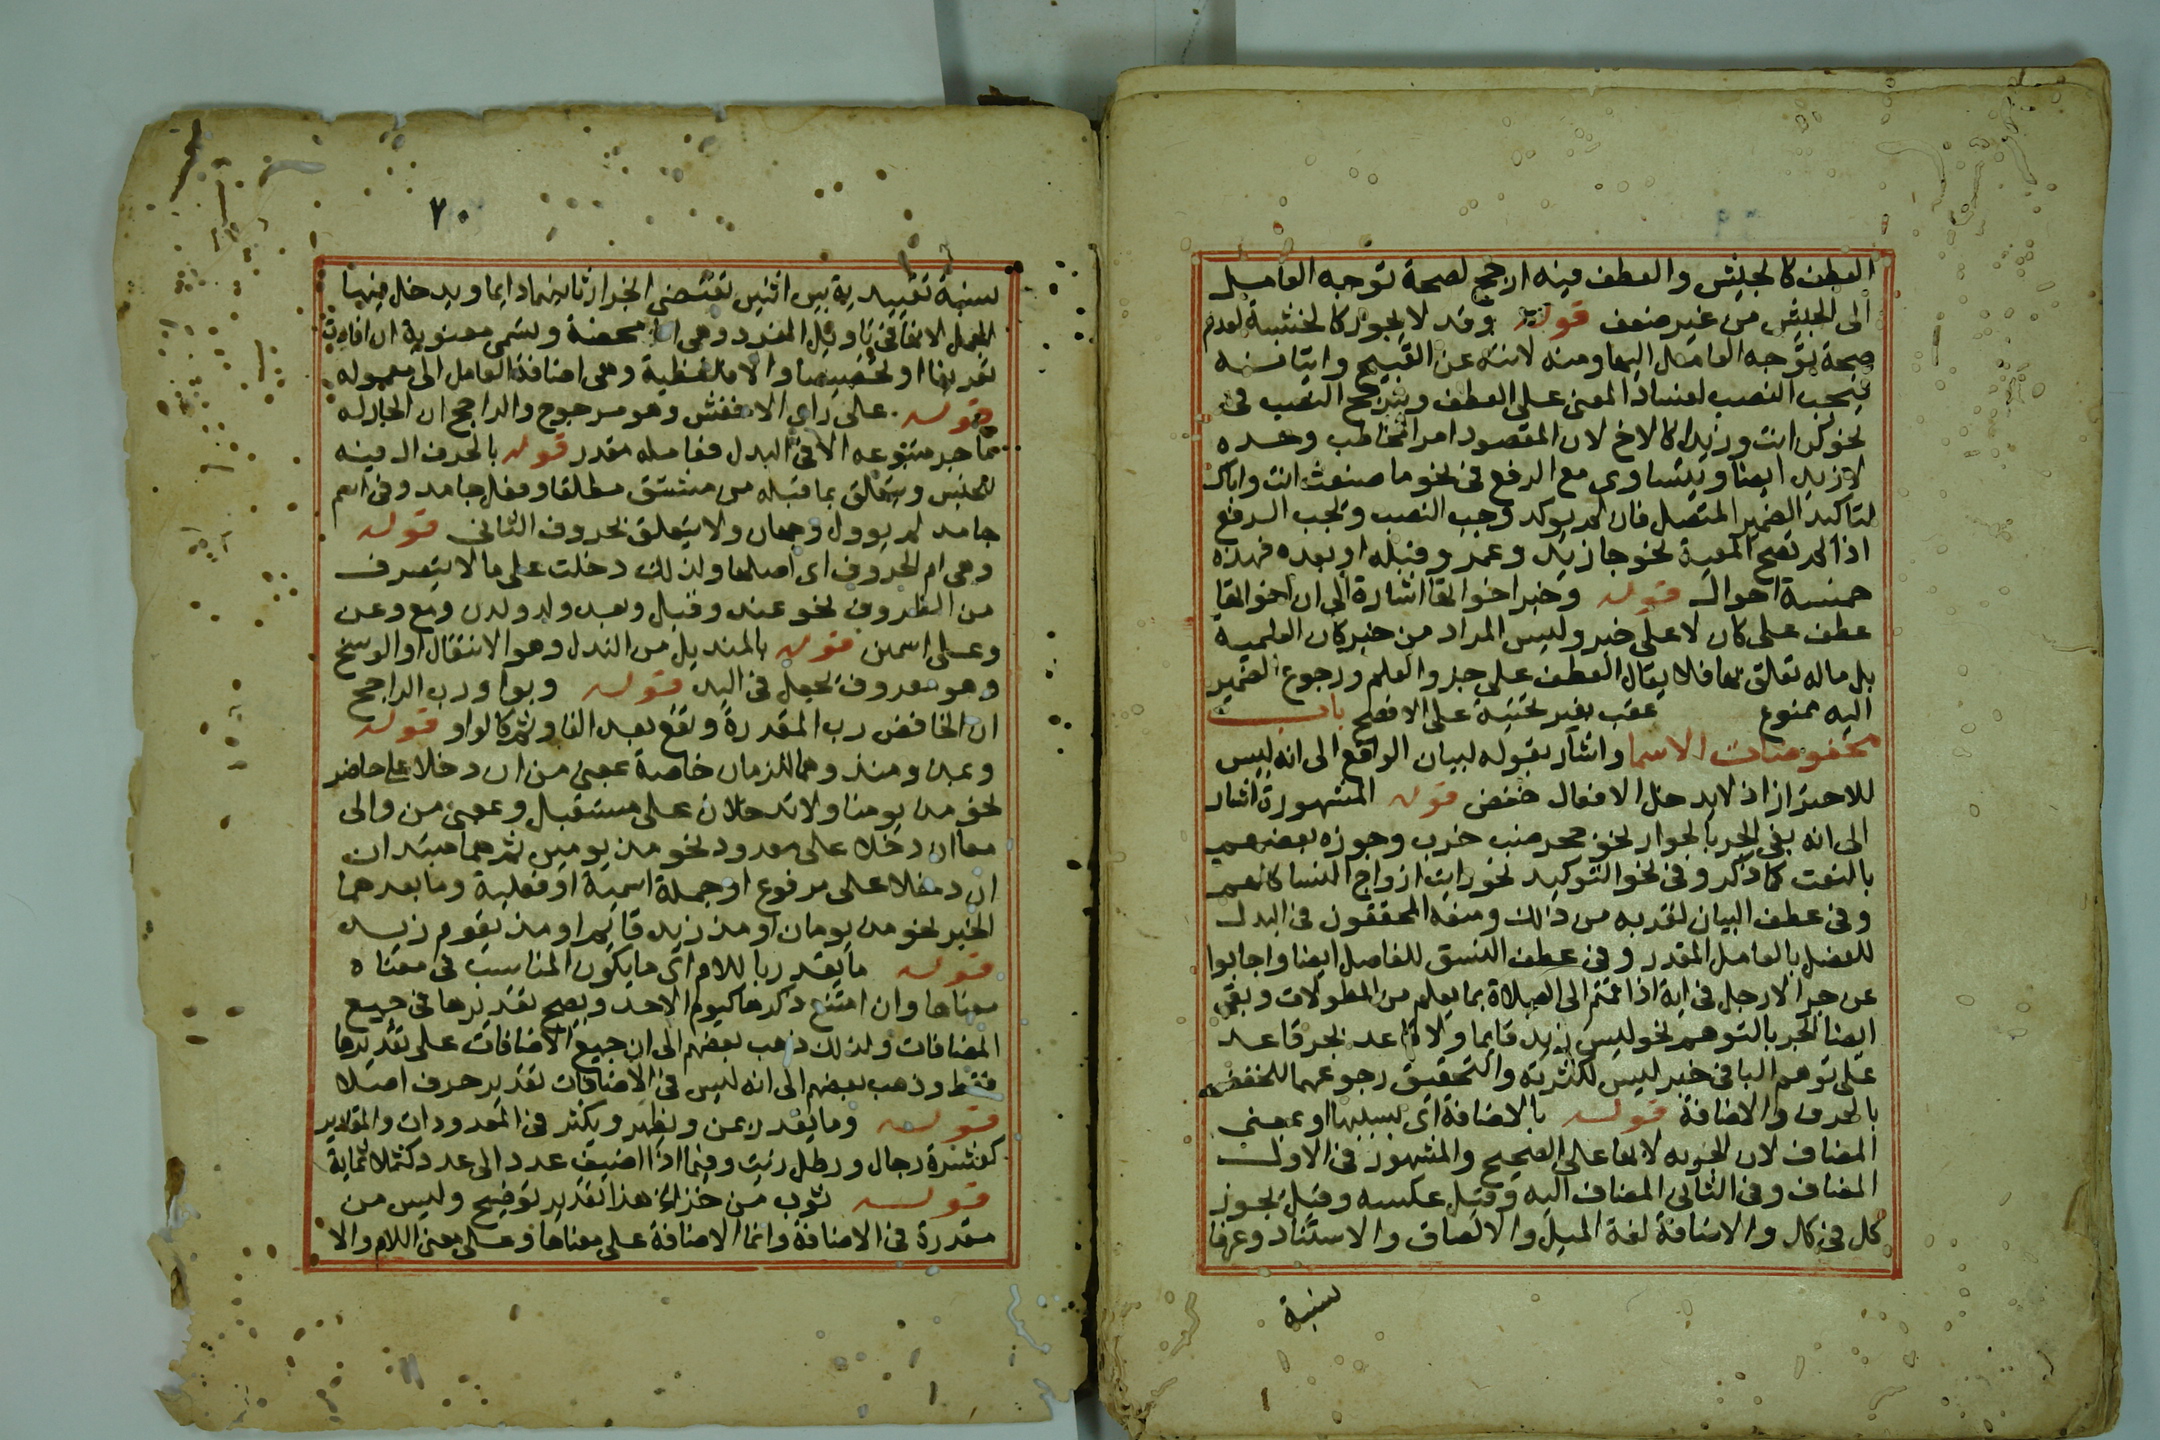 العطف كالجيش والعطف فيه ارجح لصحة توجه العامل
الى الجيش من غير ضعف قوله وقد لا يجوز كالخشبة لعدم
صحة توجه العامل اليها ومنه لا تنه عن القبيح واتيانه
فيجب النصب لفساد المعنى على العطف ويترجح النصب فى
نحو كن انت وزيدا كالاخ لان المقصود امر المخاطب وحده
لا زيد ايضا ويتساوى مع الرفع فى نحو ما صنعت انت واباك
لتاكيد الضمير المتصل فان لم يوكد وجب النصب ويجب الرفع
اذا لم تصح المعية نحو جا زيد وعمر وقبله او بعده فهذه
خمسة احوال قوله وخبر اخواتها اشارة الى ان اخواتها
عطف على كان لا على خبر وليس المراد من خبر كان العلمية
بل ماله تعلق بها فلا يقال العطف على جزو العلم ورجوع الضمير
اليه ممنوع عقب بغير تحتية على الافصح باب
مخفوضات الاسما واشار بقوله لبيان الواقع الى انه ليس
للاحتراز اذ لا يدخل الافعال خفض قوله المشهورة اشار
الى انه بقى الجر بالجوار نحو جحر ضب خرب وجوزه بعضهم
بالنعت كما ذكر وفى نحو التوكيد نحو رايت ازواج النسا كلهم
وفى عطف البيان لقربه من ذلك ومنعه المحققون فى البدل
للفصل بالعامل المقدر وفى عطف النسق للفاصل ايضا واجابوا
عن جر الارجل فى اية اذا قمتم الى الصلاة بما يعلم من المطولات وبقى
ايضا الجر بالتوهم نحو ليس زيد قايما ولا قاعد بجر قاعد
على توهم البا فى خبر ليس لكثرته والتحقيق رجوعهما للخفض
بالحرف والاضافة قوله بالاضافة اى بسببها او بمعنى
المضاف لان الجر به لا بها على الصحيح والمشهور فى الاول
المضاف وفى الثانى المضاف اليه وقيل عكسه وقيل يجوز
كل فى كل والاضافة لغة الميل والالصاق والاسناد وعرفا
نسبة
٧٠
نسبة تقييدية بين اثنين تقتضى انجرار ثانيهما دايما ويدخل فيها
الجمل لانها فى تاويل المفرد وهى اما محضة وتسمى معنوية ان افادت
تعريفا او تخصيصا والا فلفظية وهى اضافة العامل الى معموله
قوله على راى الاخفش وهو مرجوح والراجح ان الجار له
ما جر متبوعه الا فى البدل فعامله مقدر قوله بالحرف ال فيه
للجنس ويتعلق بما قبله من مشتق مطلقا وفعل جامد وفى اسم
جامد لم يوول وجهان ولا يتعلق بحروف الثانى قوله
وهى ام الحروف اى اصلها ولذلك دخلت على ما لا يتصرف
من الظروف نحو عند وقبل وبعد ولد ولدن ومع وعن
وعلى اسمين قوله بالمنديل من الندل وهو الانتقال او الوسخ
وهو معروف يجعل فى اليد قوله وبواو رب الراجح
ان الخافض رب المقدرة وتقع بعد الفا وثم كالواو قوله
وبمذ ومنذ وهما للزمان خاصة بمعنى من ان دخلا على حاضر
نحو مذ يومنا ولا تدخلان على مستقبل وبمعنى من والى
معا ان دخلا على معدود نحو مذ يومين ثم هما مبتدان
ان دخلا على مرفوع او جملة اسمية او فعلية وما بعدهما
الخبر نحو مذ يومان او مذ زيد قايم او مذ يقوم زيد
قوله ما يقدر باللام اى ما يكون المناسب فى معناه
معناها وان امتنع ذكرها كيوم الاحد ويصح تقديرها فى جميع
المضافات ولذلك ذهب بعضهم الى ان جميع الاضافات على تقديرها
فقط وذهب بعضهم الى انه ليس فى الاضافات تقدير حرف اصلا
قوله وما يقدر بمن ويظهر ويكثر فى المعدودات والمقادير
كعشرة رجال ورطل زيت وفيما اذا اضيف عدد الى عدد كثلاثماية
قوله ثوب من خز لانه هذا تقدير توضيح وليس من
مقدرة فى الاضافة وانما الاضافة على معناها وعلى معنى اللام والا